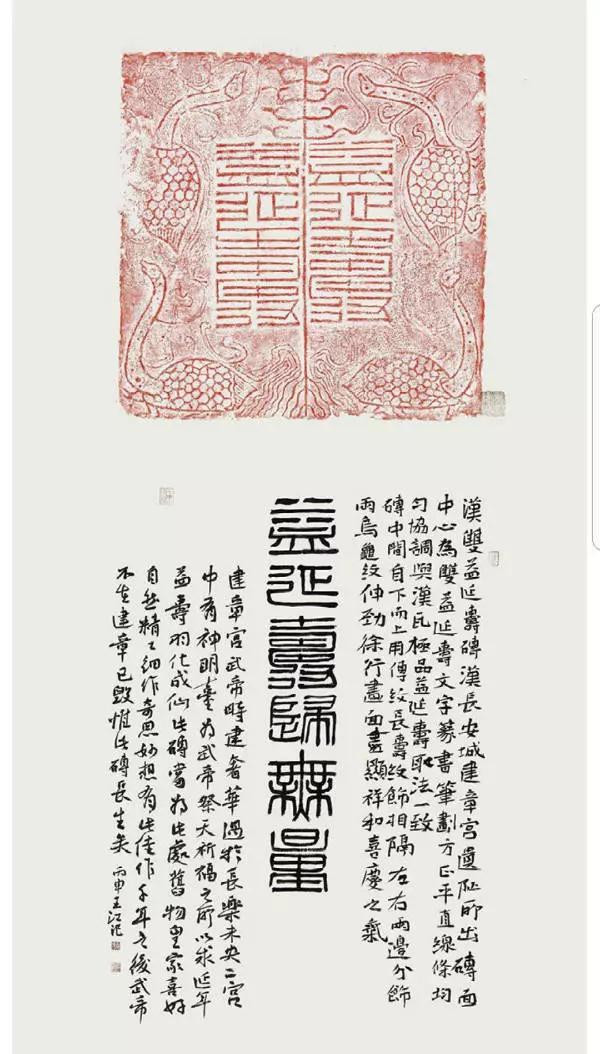 益延壽
益延壽
漢雙益延壽磚漢長安城建章宮遺阯所出磚面
中心為雙益延壽文字篆書筆劃方正平直線條均
勻協調與漢瓦極品益延壽取法一致
磚中間自下而上用傳紋長壽紋飾相隔左右兩邊分飾
兩鳥龜紋伸勁徐行畫面盡顯祥和喜慶之氣
益延壽歸無量
建章宮武帝時建奢華過於長樂未央二宮
中有神明臺為武帝祭天祈福之所以求延年
益壽羽化成仙此磚當為此處舊物皇家喜好
自然精工細作奇思妙想有此佳作千年之後武帝
不在建章已毀惟此磚長生矣 丙申王江記